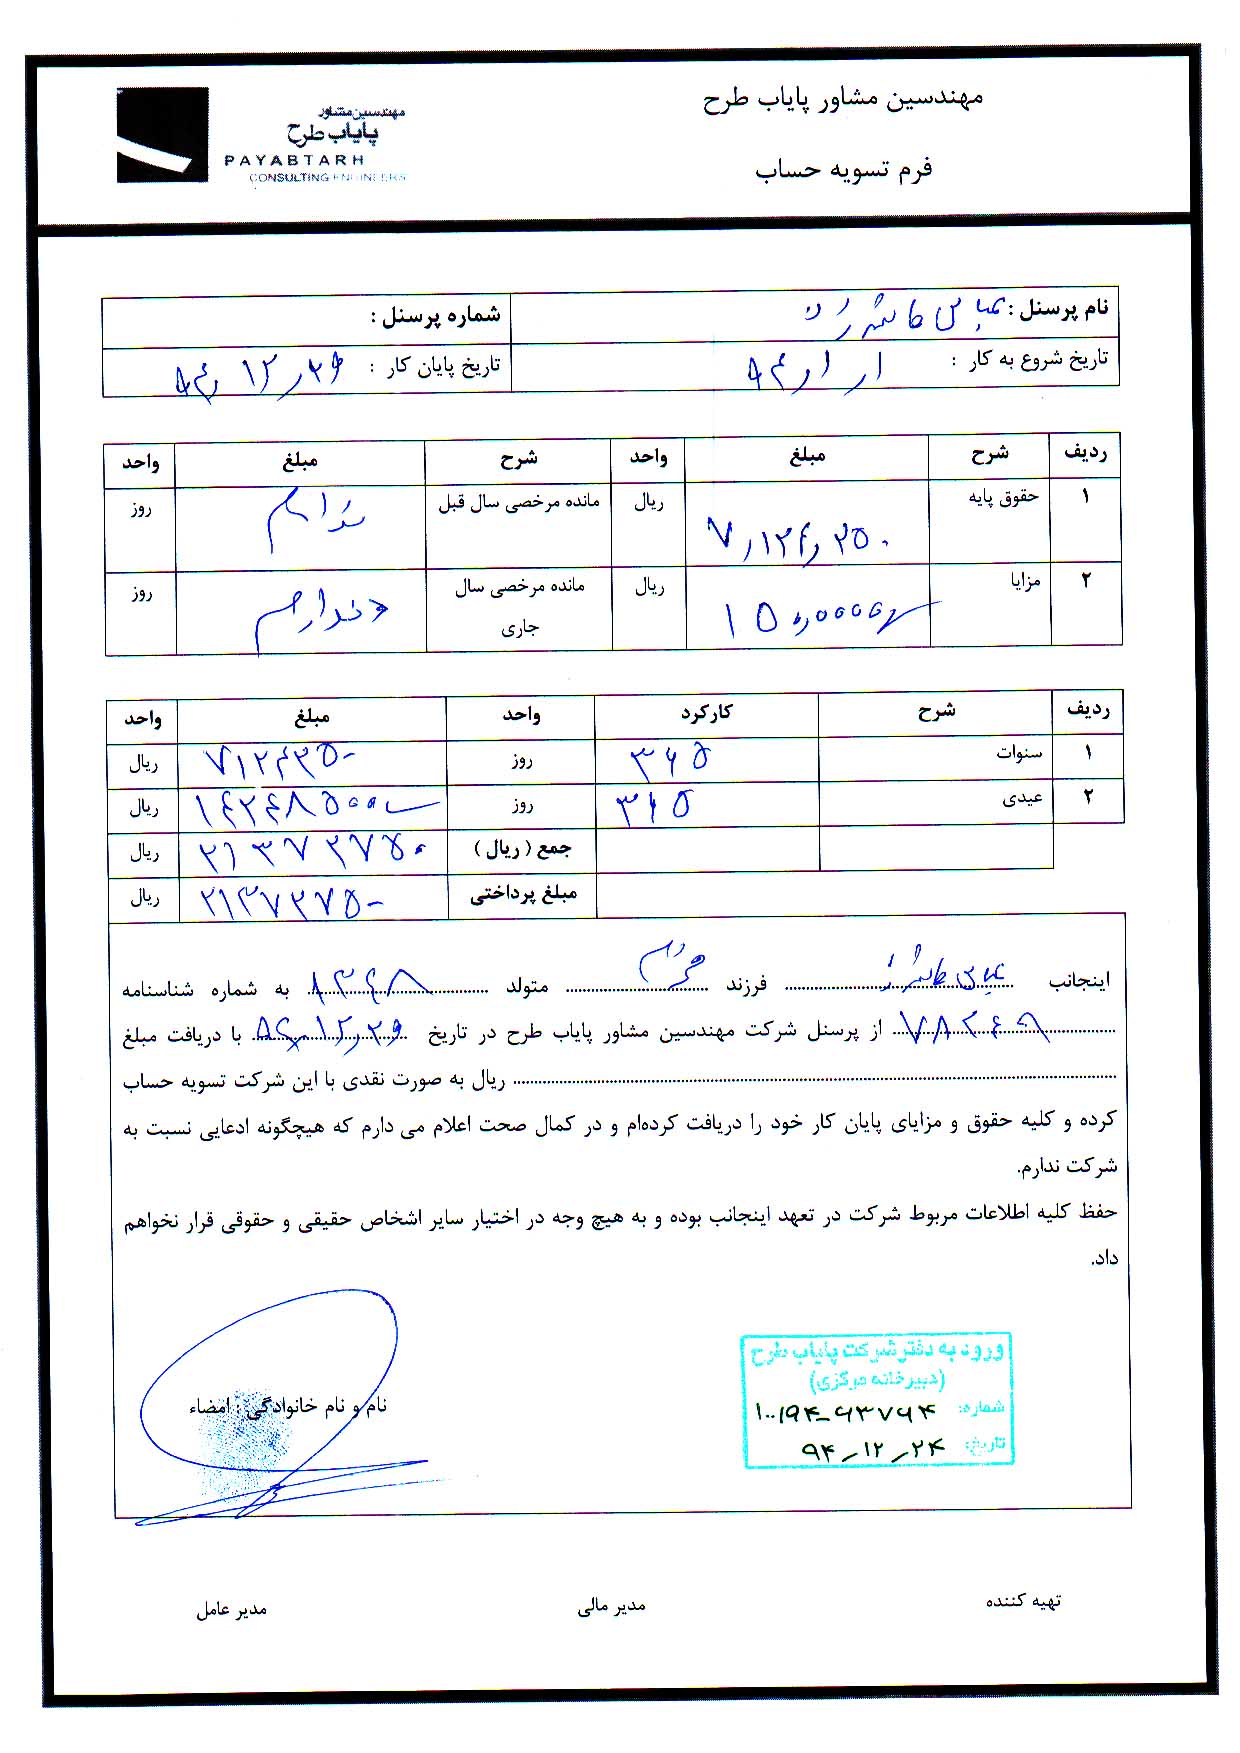 مهندسین مشاور پایاب طرح
فرم تسویه حساب
مهندسین مشاور
پایاب طرح
PAYABTARH
CONSULTING ENGINEERS
نام پرسنل : عباس
شماره پرسنل :
تاریخ شروع به کار :
تاریخ پایان کار :
ردیف شرح مبلغ واحد شرح مبلغ واحد
۱ حقوق پایه ۷,۱۲۴,۲۵۰ ریال مانده مرخصی سال قبل ندارم روز
۲ مزایا ریال مانده مرخصی سال جاری ندارم روز
ردیف شرح کارکرد واحد مبلغ واحد
۱ سنوات ۳۶۵ روز ریال
۲ عیدی ۳۶۵ روز ۱۴۲۴۸۵۰۰ ریال
جمع ( ریال ) ۲۱۳۷۲۷۵۰ ریال
مبلغ پرداختی ۲۱۳۷۲۷۵۰ ریال
اینجانب عباس فرزند متولد ۱۳۴۸ به شماره شناسنامه
از پرسنل شرکت مهندسین مشاور پایاب طرح در تاریخ با دریافت مبلغ
ریال به صورت نقدی با این شرکت تسویه حساب
کرده و کلیه حقوق و مزایای پایان کار خود را دریافت کرده‌ام و در کمال صحت اعلام می دارم که هیچگونه ادعایی نسبت به
شرکت ندارم.
حفظ کلیه اطلاعات مربوط شرکت در تعهد اینجانب بوده و به هیچ وجه در اختیار سایر اشخاص حقیقی و حقوقی قرار نخواهم
داد.
ورود به دفتر شرکت پایاب طرح
(دبیرخانه مرکزی)
شماره: ۱۰۰/۹۴-۹۳۷۹۴
تاریخ: ۹۴/۱۲/۲۴
نام و نام خانوادگی : امضاء
تهیه کننده مدیر مالی مدیر عامل